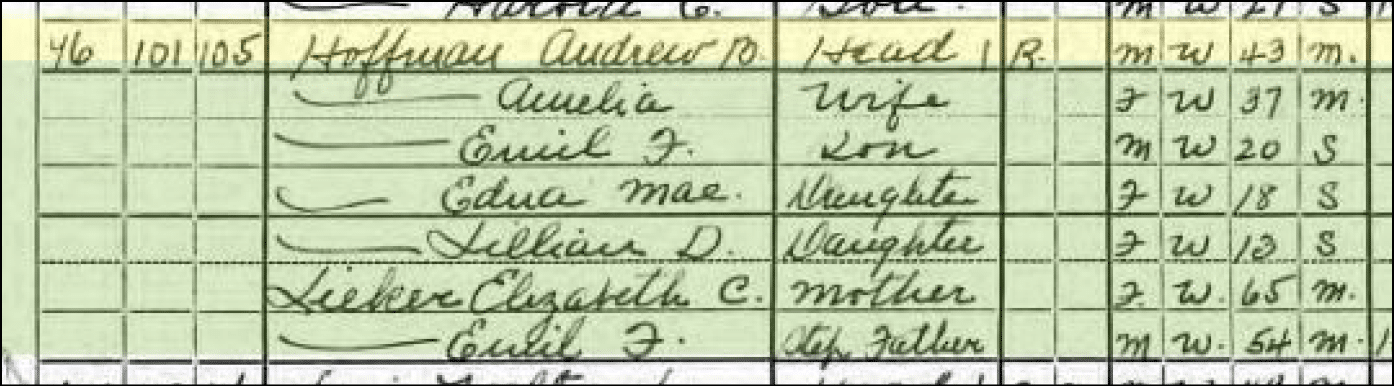 Harold C. Son. M W 21 S
46 101 105 Hoffman Andrew B. Head 1 R. M W 43 M.
Amelia Wife F W 37 M.
Emil F. Son M W 20 S
Edna Mae. Daughter F W 18 S
Lillian D. Daughter F W 13 S
Lieker Elizabeth C. Mother F. W. 65 M.
Emil F. Step Father M W. 54 M. 1